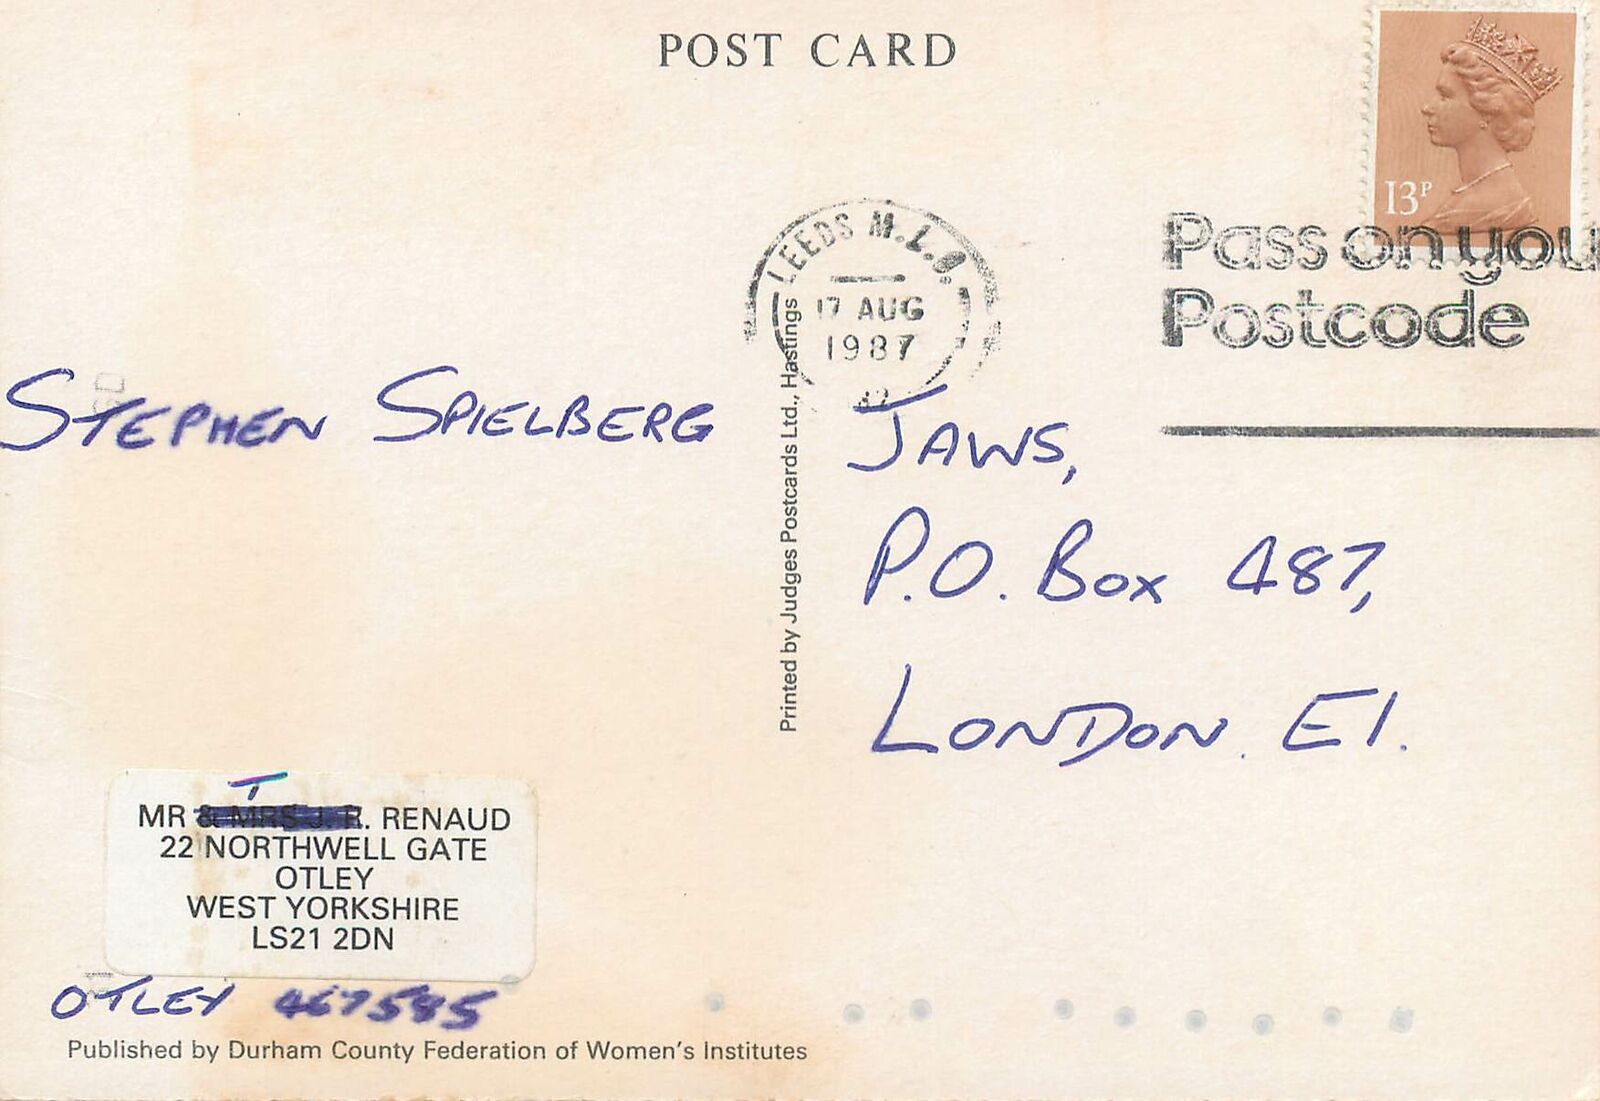 POST CARD
13P
LEEDS M.L.O.
17 AUG
1987
Pass on you
Postcode
STEPHEN SPIELBERG
JAWS,
P.O. Box 487,
LONDON. E1.
Printed by Judges Postcards Ltd., Hastings
T
MR & MRS J. R. RENAUD
22 NORTHWELL GATE
OTLEY
WEST YORKSHIRE
LS21 2DN
OTLEY 467585
Published by Durham County Federation of Women's Institutes